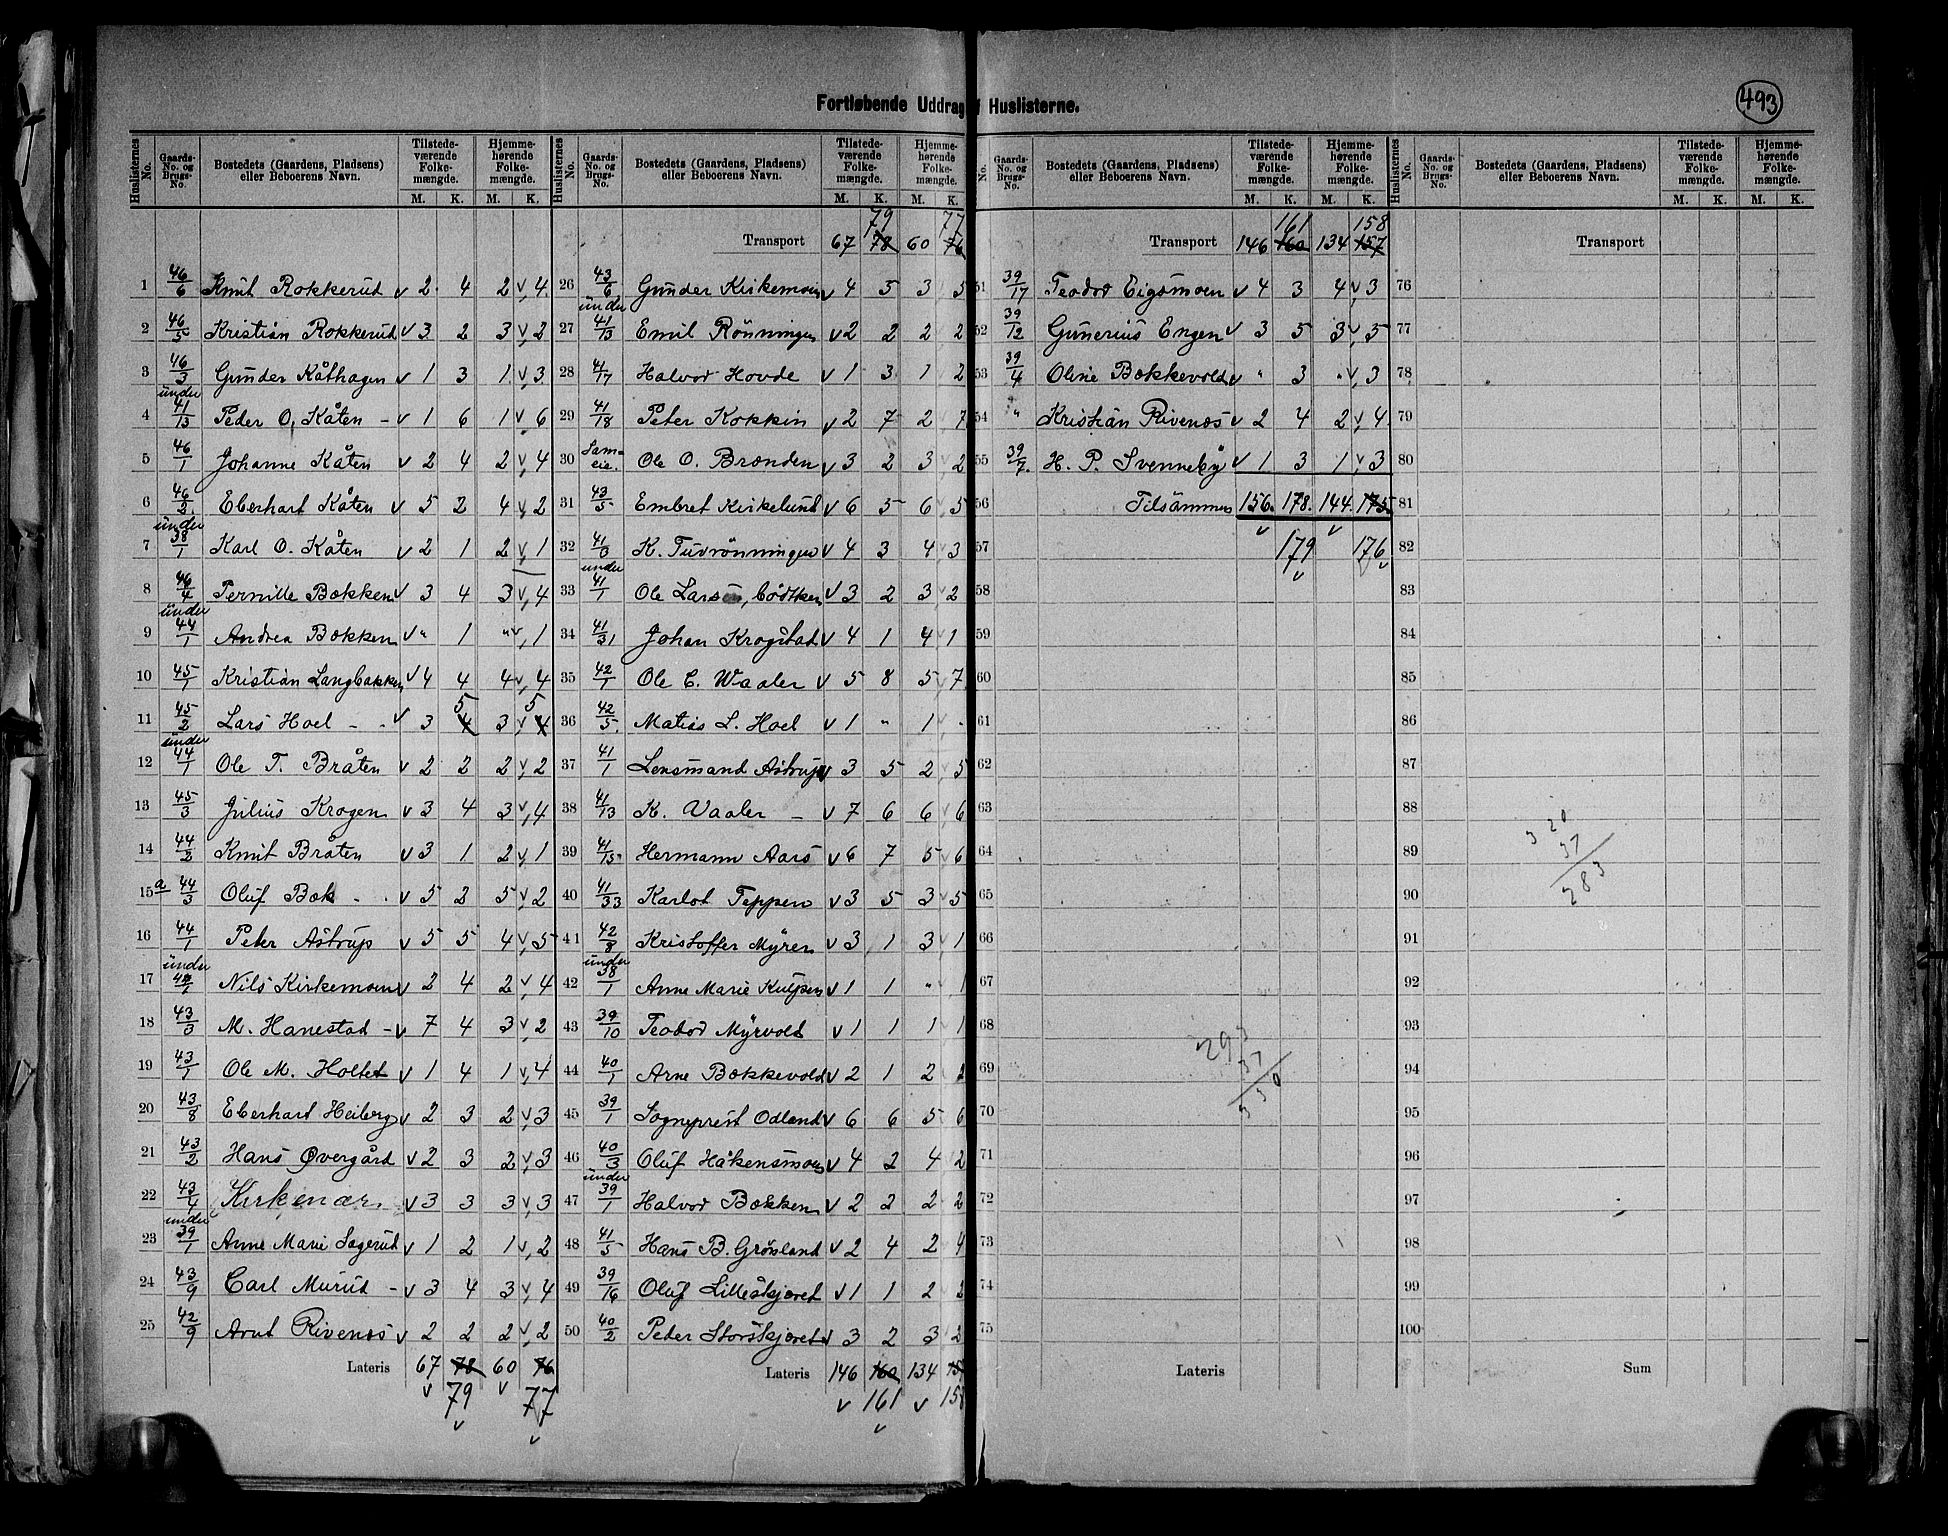 493
Fortløbende Uddrag f Huslisterne.
Huslisternes No. Gaards-No. og Brugs-No. Bostedets (Gaardens, Pladsens) eller Beboerens Navn. Tilstedeværende Folkemængde. M. K. Hjemmehørende Folkemængde. M. K.
1 46/6 Knut Rokkerud v 2 4 2 v 4
2 46/5 Kristian Rokkerud v 3 2 3 v 2
3 46/3 Gunder Kåthagen v 1 3 1 v 3
4 under 41/13 Peder O. Kåten - v 1 6 1 v 6
5 46/1 Johanne Kåten v 2 4 2 v 4
6 46/2 Eberhart Kåten v 5 2 4 v 2
7 under 38/1 Karl O. Kåten v 2 1 2 v 1
8 46/4 Pernille Bækken v 3 4 3 v 4
9 under 44/1 Andrea Bækken v " 1 " v 1
10 45/1 Kristian Langbakken v 4 4 4 v 4
11 45/2 Lars Hoel - - v 3 4 5 3 v 4 5
12 under 44/1 Ole T. Bråten v 2 2 2 v 2
13 45/3 Julius Krogen v 3 4 3 v 4
14 44/2 Knut Bråten v 3 1 2 v 1
15a 44/3 Oluf Bæk - . v 5 2 5 v 2
16 44/1 Peter Astrup v 5 5 4 v 5
17 under Nils Kirkemoen v 2 4 2 v 4
18 43/3 M. Hanestad - v 7 4 3 v 2
19 43/1 Ole M. Holtet v 1 4 1 v 4
20 43/8 Eberhart Heiberg v 2 3 2 v 3
21 43/2 Hans Øvergård v 2 3 2 v 3
22 43/4 Kirkenær v 3 3 3 v 3
23 under 39/1 Anne Marie Sagerud v 1 2 1 v 2
24 43/9 Carl Murud - v 3 4 3 v 4
25 42/9 Arnt Rivenæs v 2 2 2 v 2
Lateris 67 78 60 76
v 79 v 77
v v
Huslisternes No. Gaards-No. og Brugs-No. Bostedets (Gaardens, Pladsens) eller Beboerens Navn. Tilstedeværende Folkemængde. M. K. Hjemmehørende Folkemængde. M. K.
79 77
Transport 67 78 60 76
26 43/6 Gunder Kirkemoen v 4 5 3 5
27 under 41/13 Emil Rønningen v 2 2 2 2
28 41/17 Halvor Hovde v 1 3 1 2
29 41/18 Peter Kokkin v 2 7 2 7
30 Sameie. Ole O. Brænden v 3 2 3 2
31 43/5 Embret Kirkelund v 6 5 6 5
32 K. Tuvrønningen v 4 3 4 3
33 under 41/1 Ole Larsen, v 3 2 3 2
34 41/31 Johan Krogstad v 4 1 4 1
35 42/1 Ole E. Waaler v 5 8 5 7
36 42/5 Matias L. Hoel v 1 " 1 "
37 41/1 Lensmand Astrup v 3 5 2 5
38 41/13 K. Vaaler - v 7 6 6 6
39 41/15 Hermann Aars v 6 7 5 6
40 41/33 Karlot Teppen v 3 5 3 5
41 42/8 Kristoffer Myren v 3 1 3 1
42 under 38/1 Anne Marie Kulpen v 1 1 " 1
43 39/10 Teodor Myrvold v 1 1 1 1
44 40/1 Arne Bækkevold v 2 1 2 2
45 39/1 Sogneprest Odland v 6 6 5 6
46 40/3 Oluf Håkensmoen v 4 2 4 2
47 under 39/1 Halvor Bækken v 2 2 2 2
48 41/5 Hans B. Grøsland v 2 4 2 4
49 39/16 Oluf Lilleskjæret v 1 1 2 2
50 40/2 Peter Storskjæret v 3 2 3 2
Lateris 146 160 134 157
v 161 v 158
v
No. Gaards-No. og Brugs-No. Bostedets (Gaardens, Pladsens) eller Beboerens Navn. Tilstedeværende Folkemængde. M. K. Hjemmehørende Folkemængde. M. K.
161 158
Transport 146 160 134 157
51 39/17 Teodor Eigsmoen v 4 3 4 v 3
52 39/12 Gunerius Engen v 3 5 3 v 5
53 39/4 Oline Bækkevold v " 3 " v 3
54 " Kristian Rivenæs v 2 4 2 v 4
55 39/7. H. P. Svenneby v 1 3 1 v 3
56 Tilsammen 156. 178. 144. 175.
57 v 179 v 176
v v
58
59
60
61
62
63
64
65
66
67
68
69
70
71
72
73
74
75
293
37
330
Lateris
Huslisternes No. Gaards-No. og Brugs-No. Bostedets (Gaardens, Pladsens) eller Beboerens Navn. Tilstedeværende Folkemængde. M. K. Hjemmehørende Folkemængde. M. K.
Transport
76
77
78
79
80
81
82
83
84
85
86
87
88
89
90
91
92
93
94
95
96
97
98
99
100
320
37
283
Sum